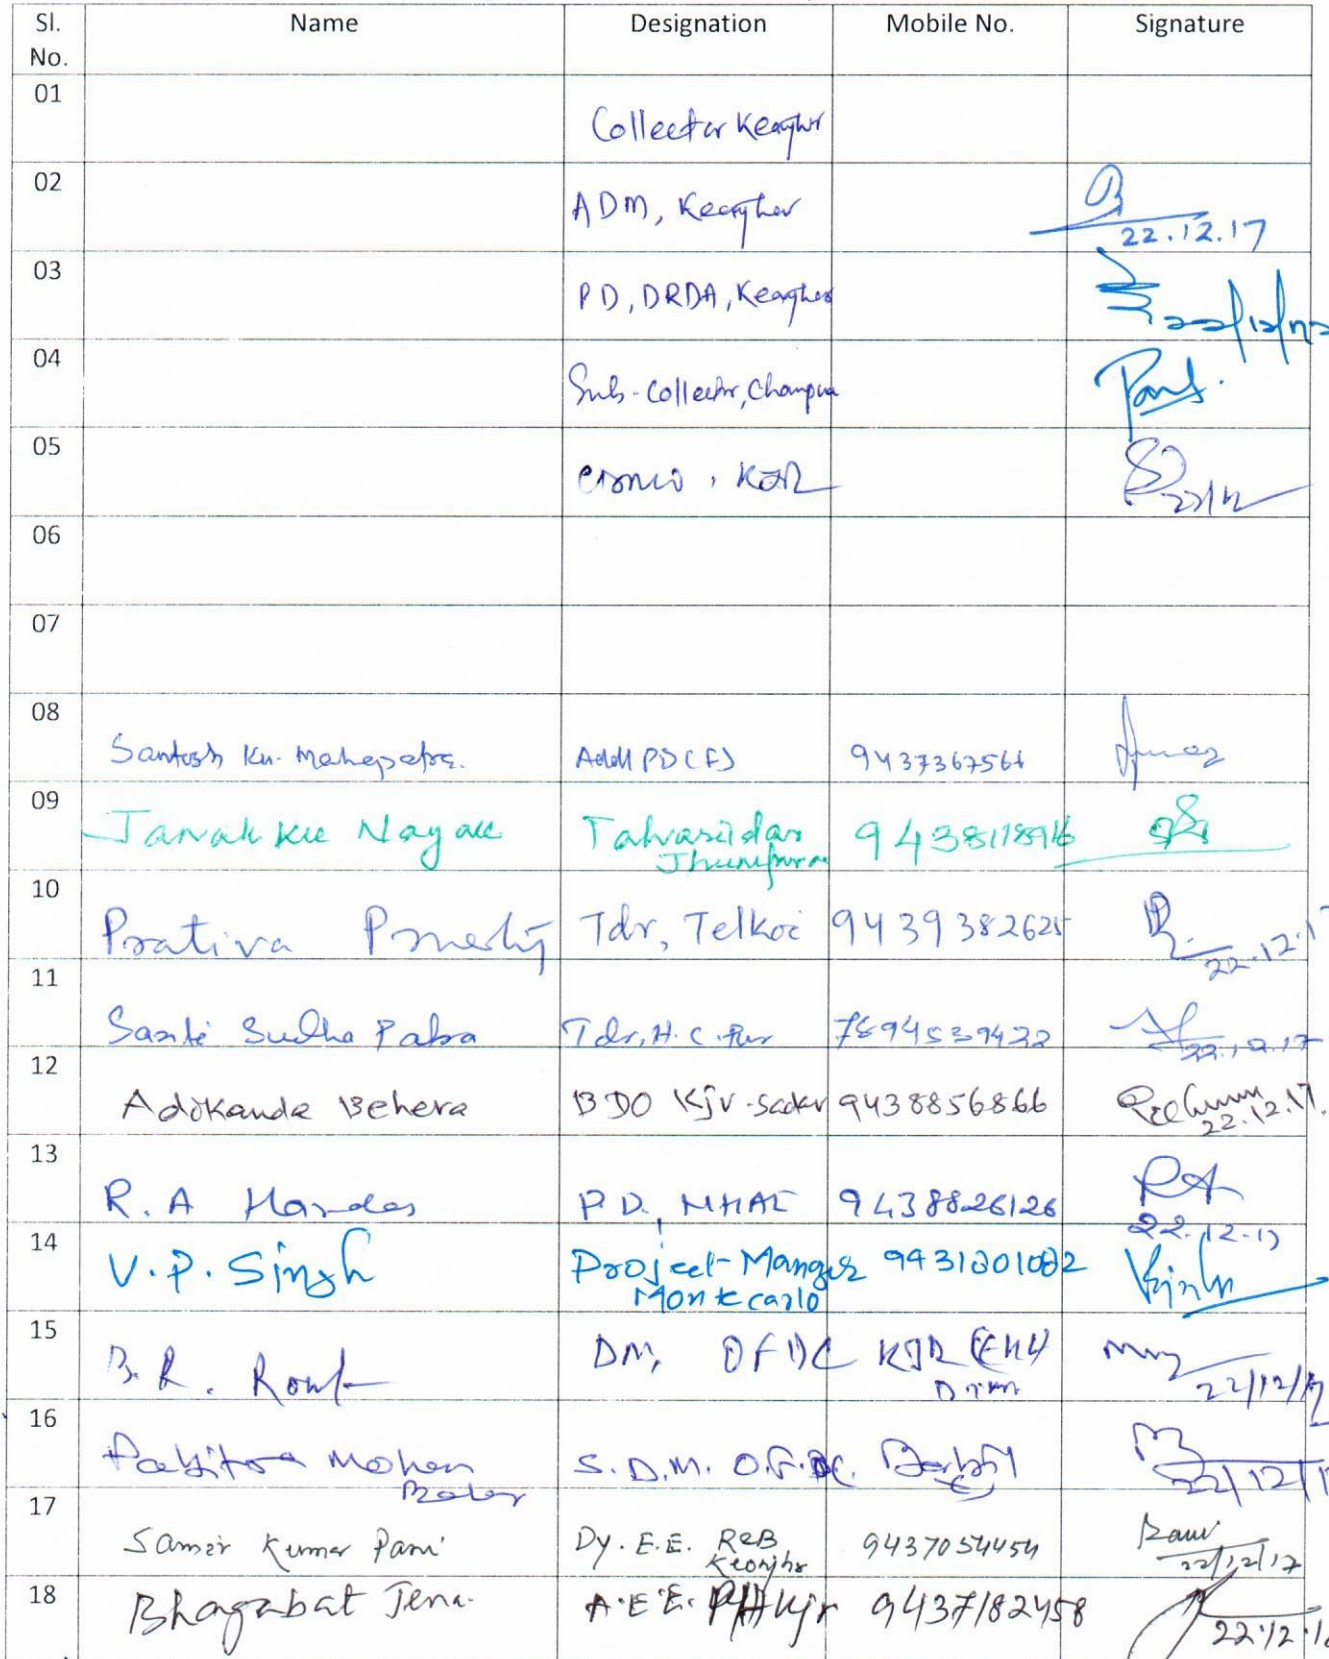 Sl. No. Name Designation Mobile No. Signature
01 Collector Keonjhar
02 ADM, Keonjhar 22.12.17
03 PD, DRDA, Keonjhar 22/12/17
04 Sub-Collector, Champua
05 KJR 22/12
06
07
08 Santosh Ku. Mahapatra. Addl PD(F) 9437367566
09 Janak Ku Nayak Tahasildar Jhumpura 9438118916
10 Prativa Tdr, Telkoi 9439382625 22.12.1
11 Santi Sudha Patra Tdr, H.C.Pur 7894539422 22.12.17
12 Adikanda Behera BDO Kjr-Sadar 9438856866 22.12.17.
13 R.A P.D., NHAI 9438826126 22.12.17
14 V.P. Singh Project-Manger Montecarlo 9431001002
15 B.R. Rout DM, OFDC KJR 22/12/17
16 Pabitra Mohan S.D.M. O.F.DC. 22/12/1
17 Samir Kumar Pani Dy. E.E. R&B Keonjhr 9437054454 22/12/17
18 Bhagabat Jena. A.E.E. PH Kjr 9437182458 22.12.1